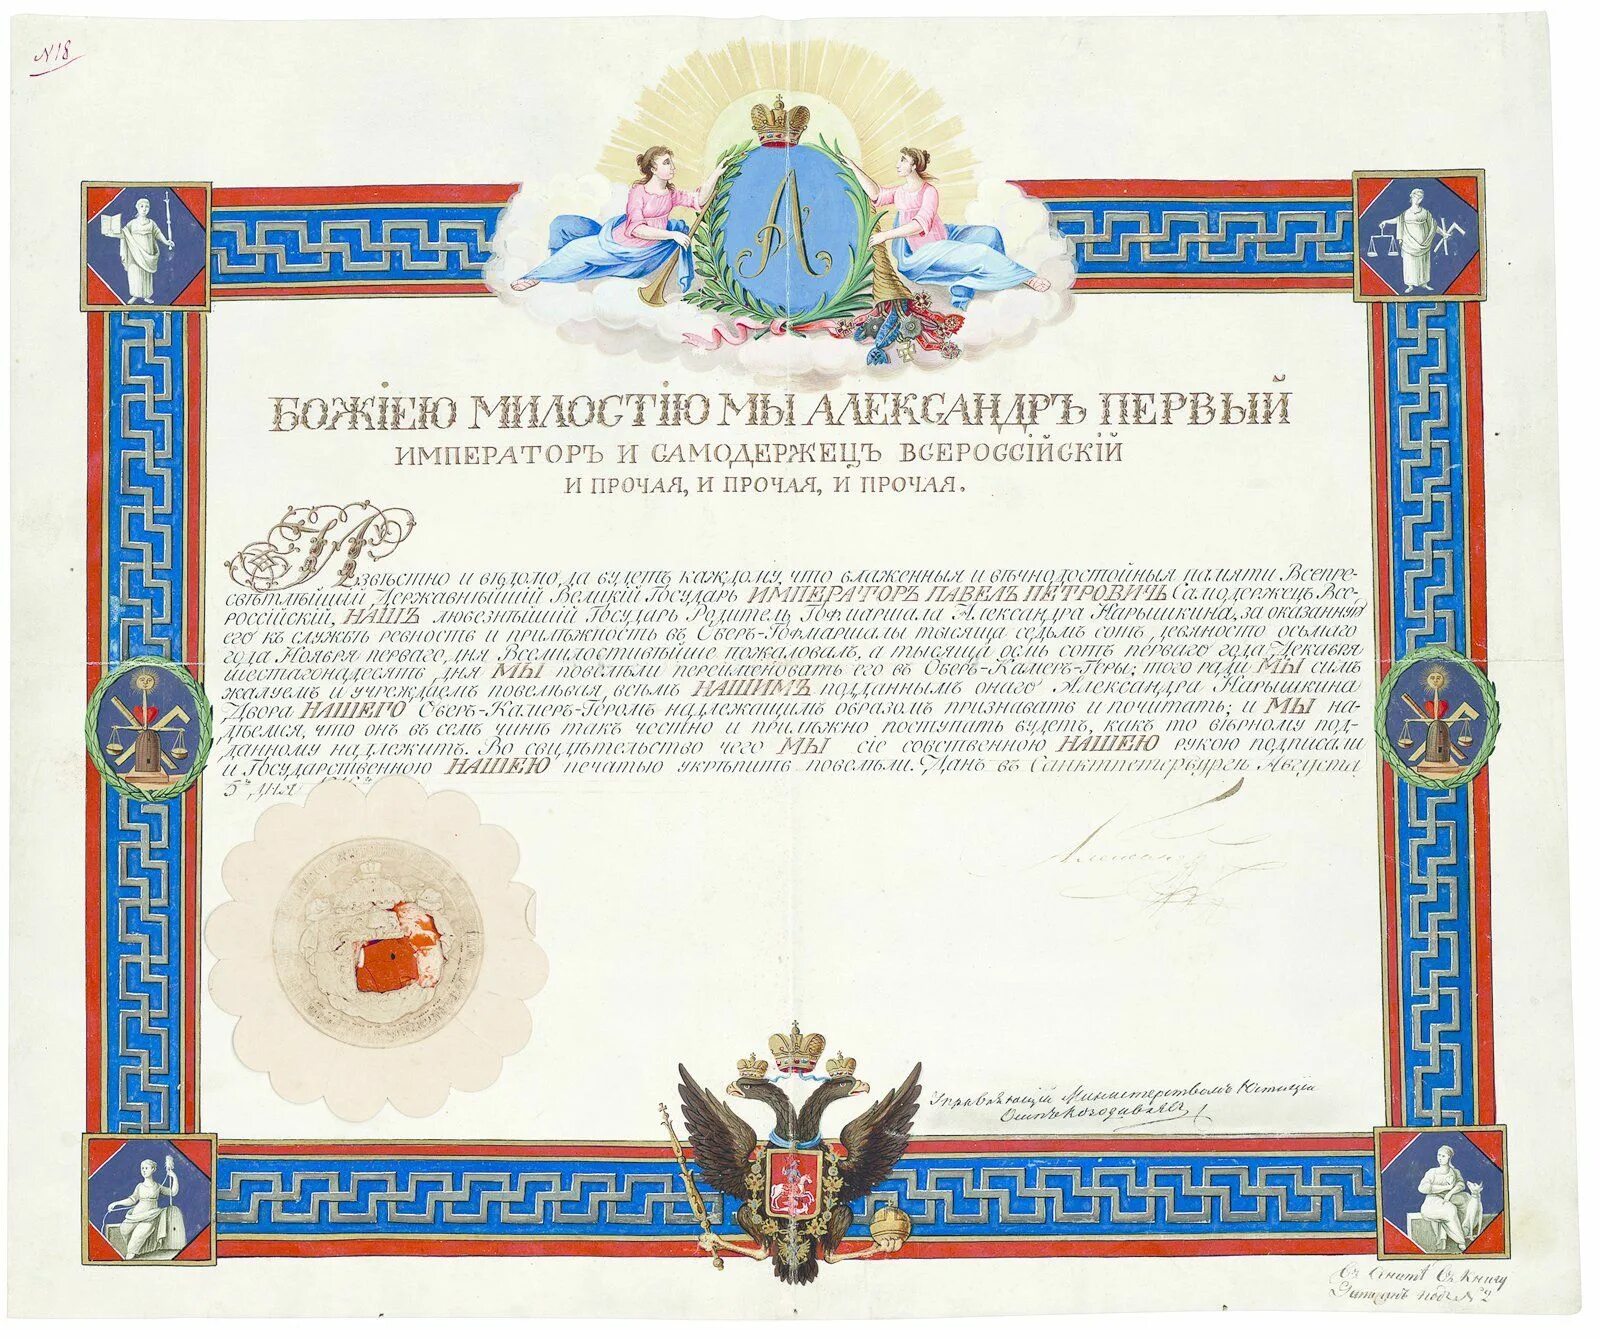 N 18
А
БОЖІЕЮ МИЛОСТІЮ МЫ АЛЕКСАНДРЪ ПЕРВЫЙ
ИМПЕРАТОРЪ И САМОДЕРЖЕЦЪ ВСЕРОССІЙСКІЙ
И ПРОЧАЯ, И ПРОЧАЯ, И ПРОЧАЯ.
Извѣстно и вѣдомо да будетъ каждому, что блаженныя и вѣчнодостойныя памяти Всепре-
свѣтлѣйшій Державнѣйшій Великій Государь ИМПЕРАТОРЪ ПАВЕЛЪ ПЕТРОВИЧЪ Самодержецъ Все-
россійскій, НАШЪ любезнѣйшій Государь Родитель Гофмаршала Александра Нарышкина, за оказанную
его къ службѣ ревность и прилѣжность въ Оберъ-Гофмаршалы тысяща седьмъ сотъ девяносто осьмаго
года Ноября перваго дня Всемилостивѣйше пожаловалъ, а тысяща осмь сотъ перваго года Декабря
шестагонадесять дня МЫ повелѣли переименовать его въ Оберъ-Камер-Геры; того ради МЫ симъ
жалуемъ и учреждаемъ повелѣвая всѣмъ НАШИМЪ подданнымъ онаго Александра Нарышкина
Двора НАШЕГО Оберъ-Камер-Геромъ надлежащимъ образомъ признавать и почитать; и МЫ на-
дѣемся, что онъ въ семъ чинѣ такъ честно и прилѣжно поступать будетъ, какъ то вѣрному под-
данному надлежитъ. Во свидѣтельство чего МЫ сіе собственною НАШЕЮ рукою подписали
и Государственною НАШЕЮ печатью укрѣпить повелѣли. Данъ въ Санктпетербургѣ Августа
5 дня
Александръ
Управляющій Министерствомъ Юстиціи
Въ Сенатѣ въ книгу
подъ № 2